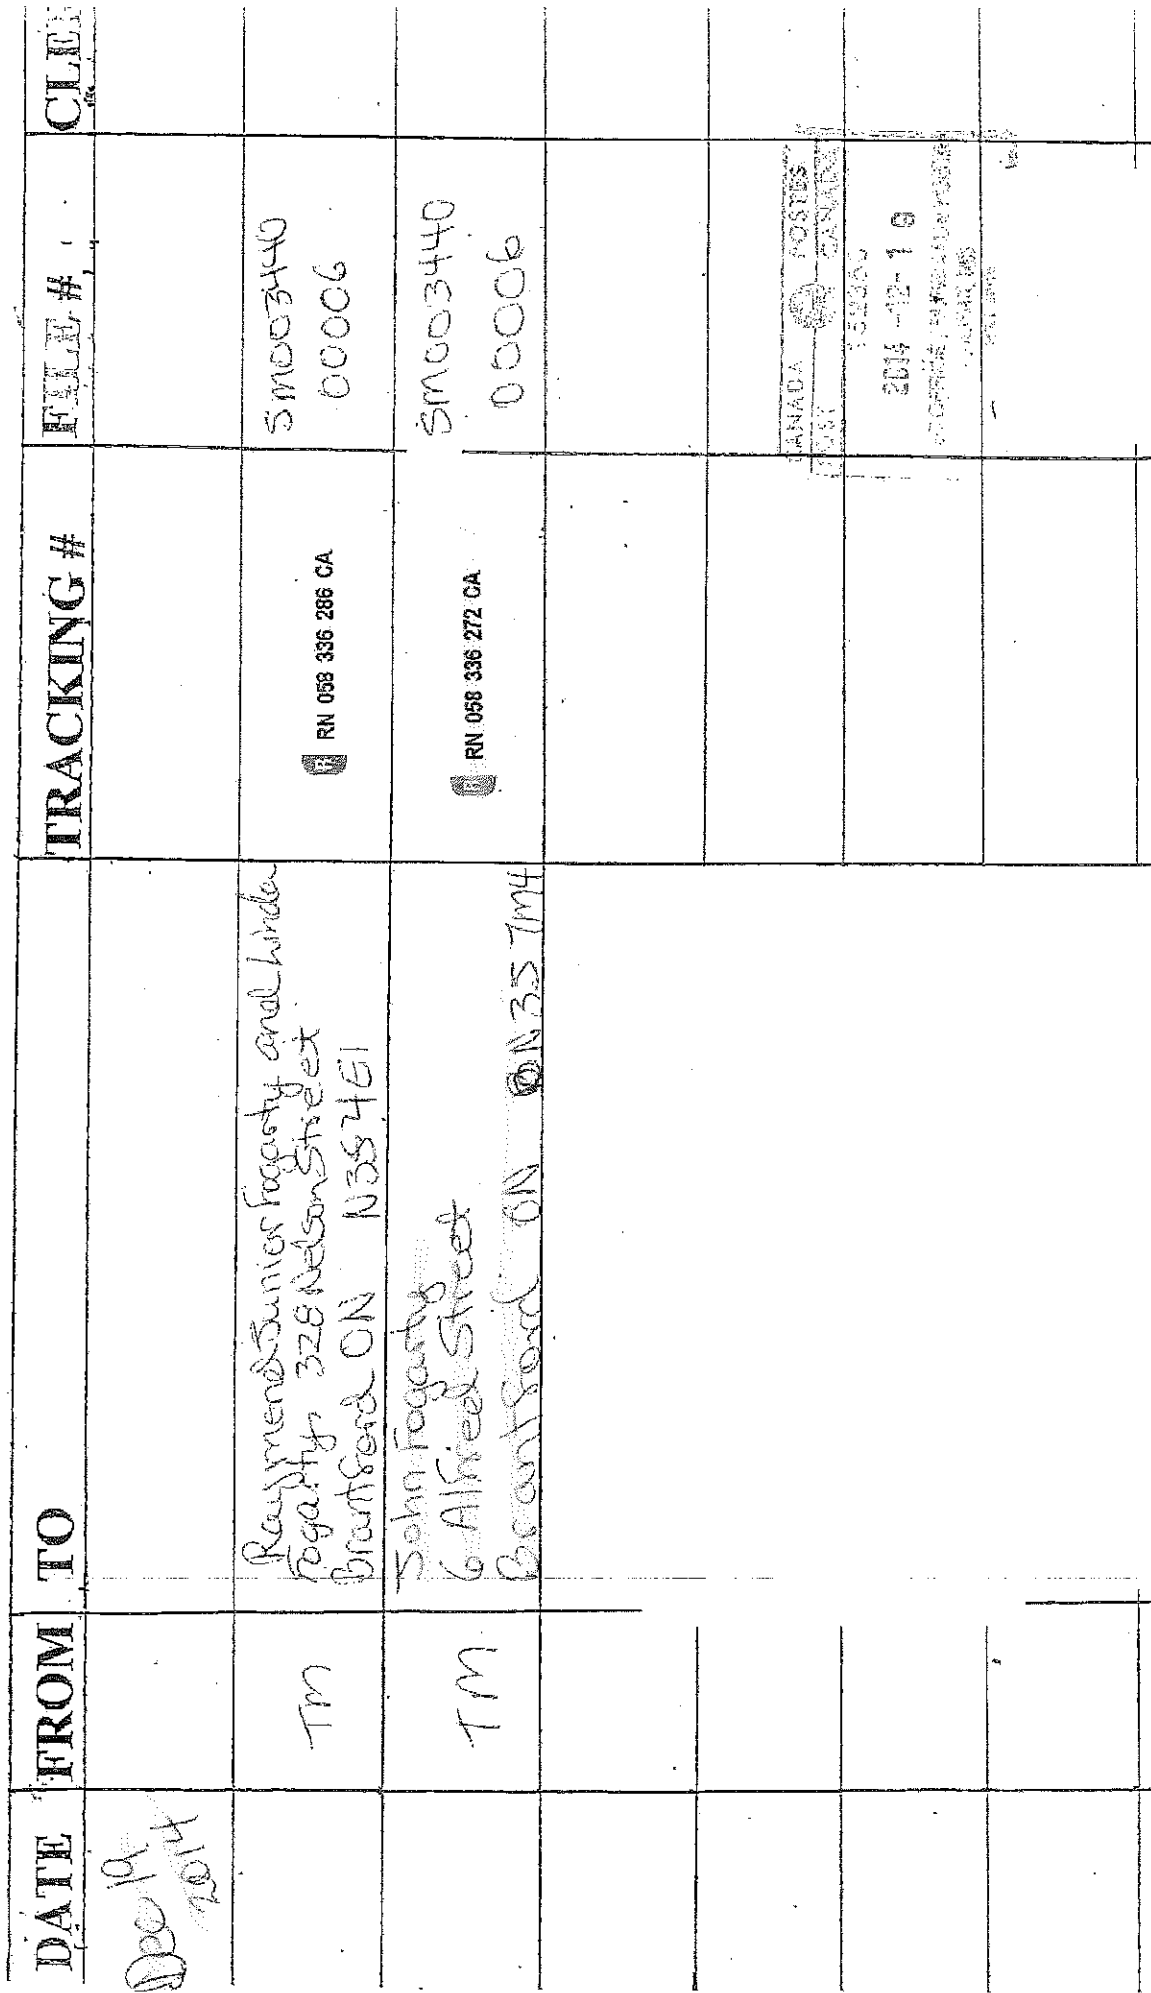 DATE FROM TO TRACKING # FILE # CLER
Dec 19
2014
TM
Raymond Junior Fogarty and Linda
Fogarty 328 Nelson Street
Brantford ON N3S 4E1
RN 058 336 286 CA
SM003440
00006
TM
John Fogarty
6 Alfred Street
Brantford ON N3S 7M4
RN 058 336 272 CA
SM003440
00006
CANADA POSTES
POST CANADA
2014-12-19